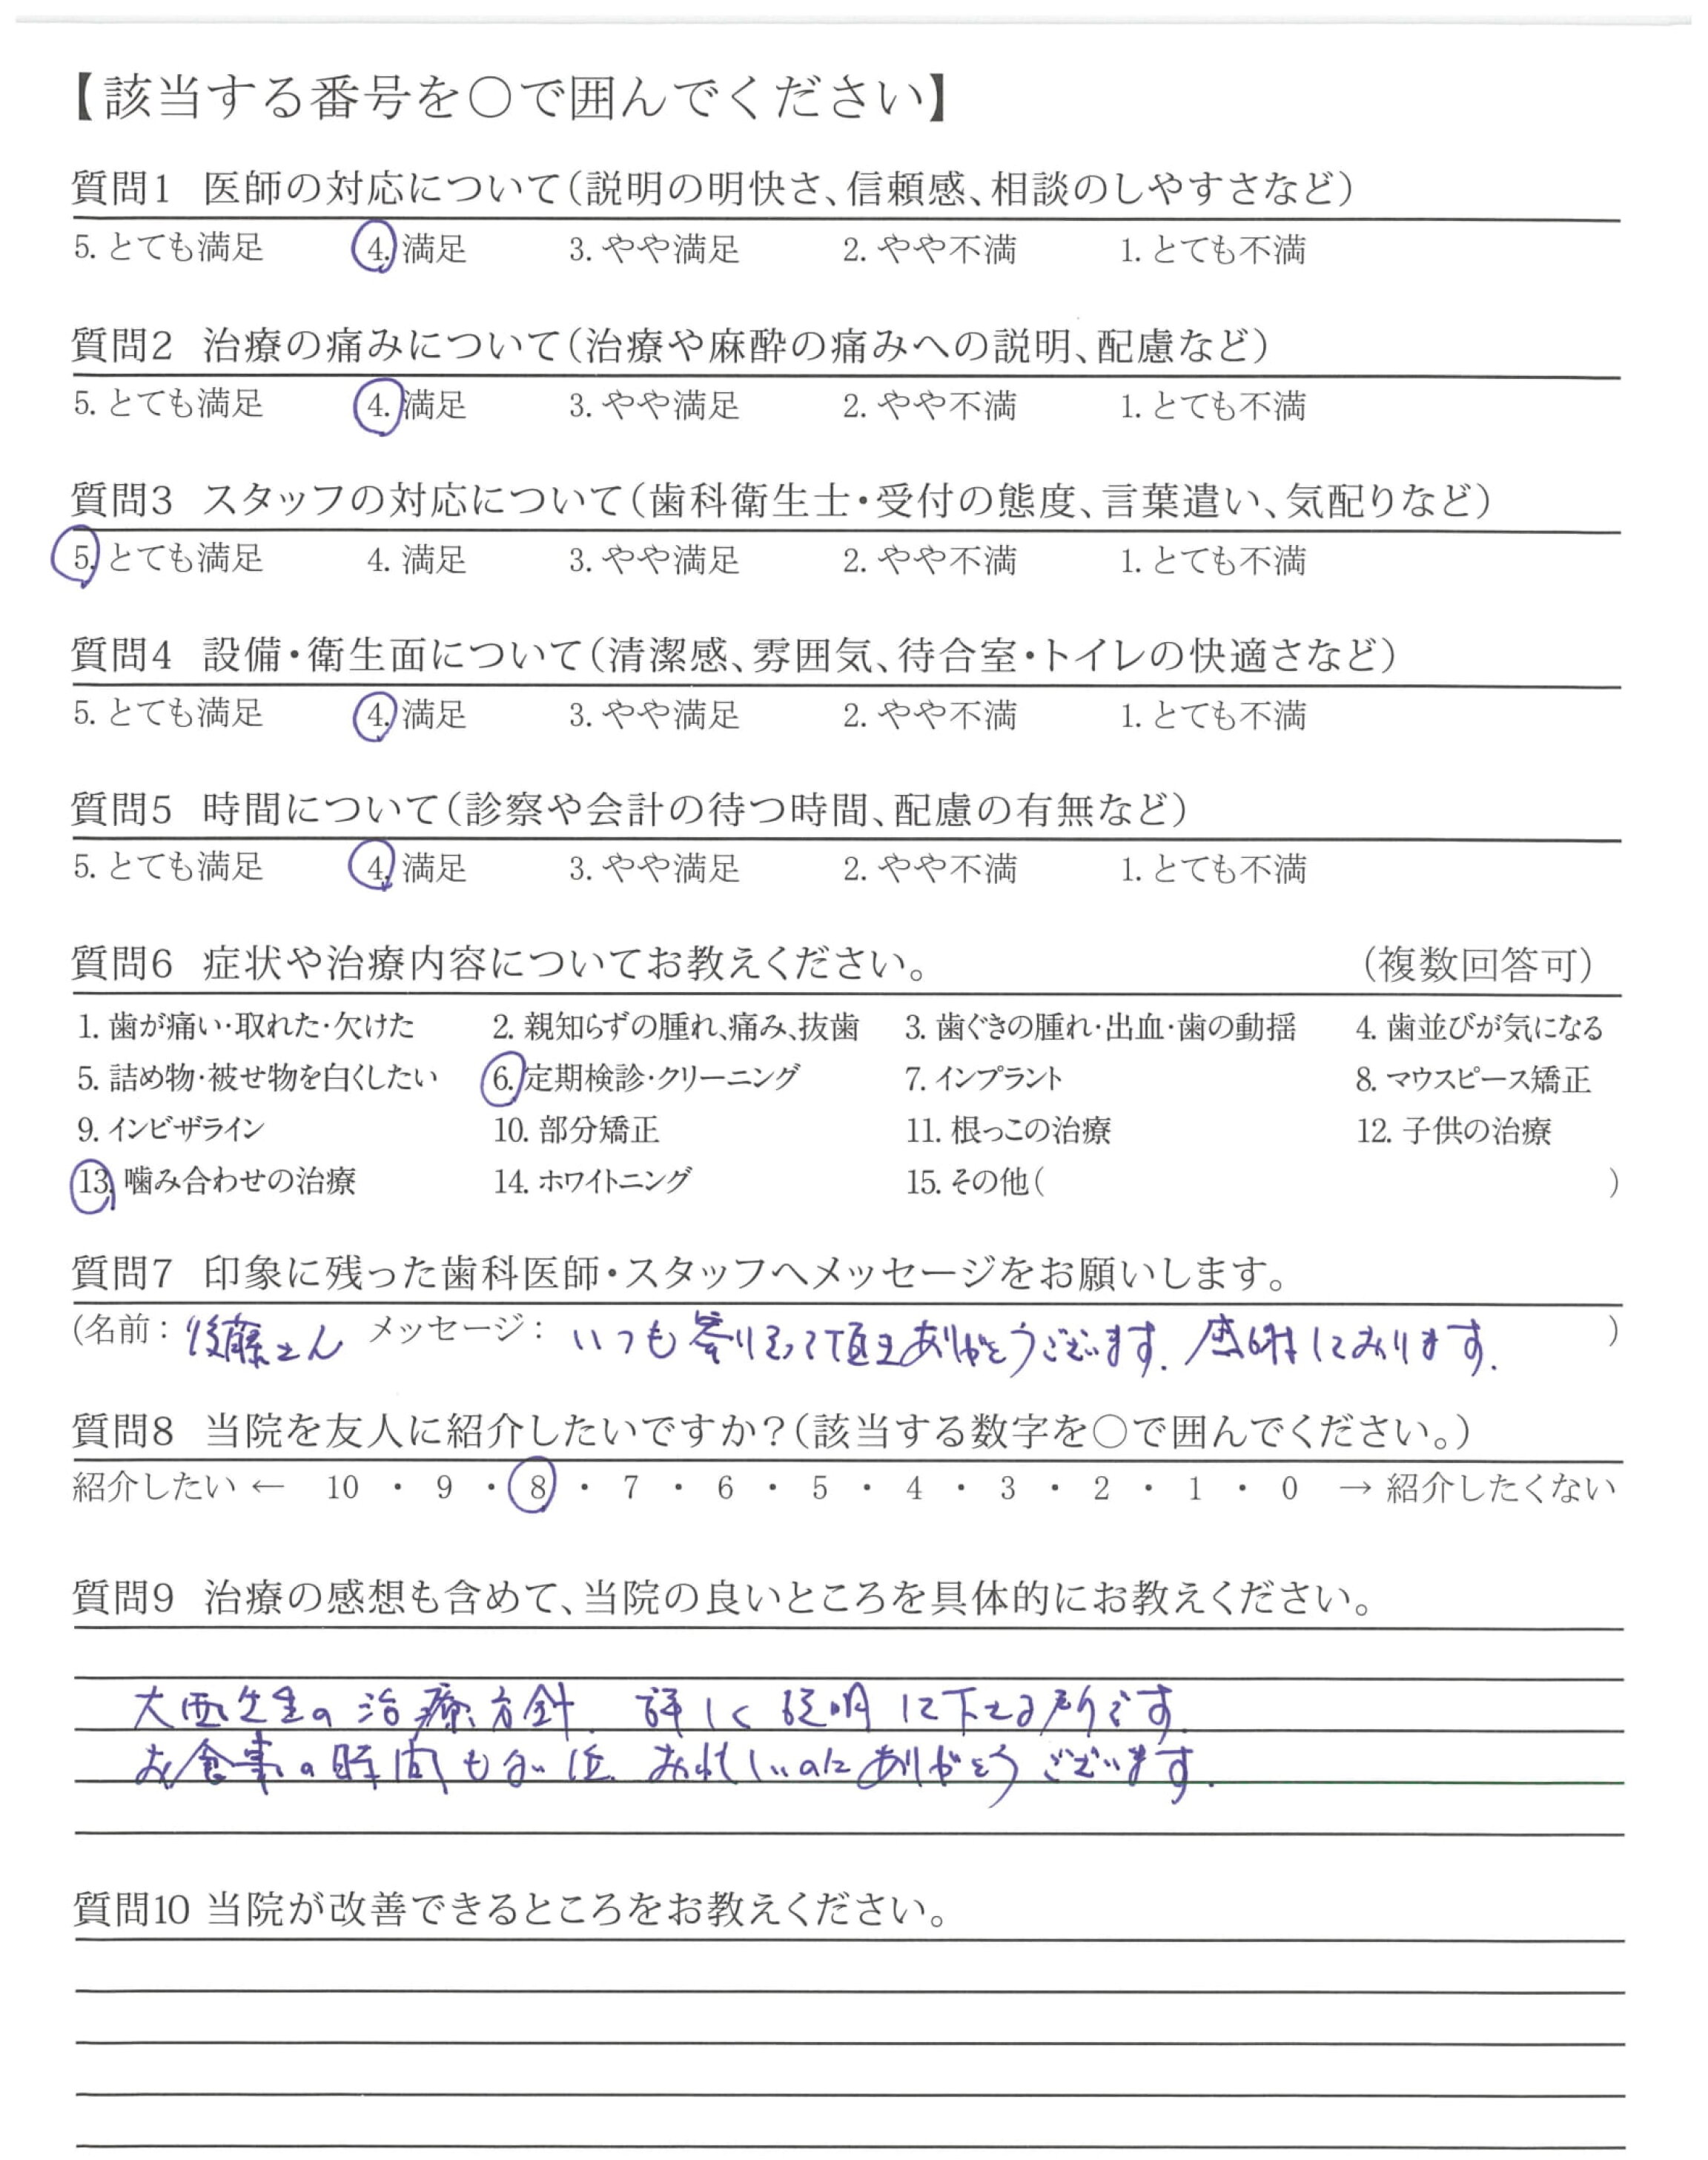 【該当する番号を〇で囲んでください】
質問1 医師の対応について(説明の明快さ、信頼感、相談のしやすさなど)
5. とても満足 4. 満足 3. やや満足 2. やや不満 1. とても不満
質問2 治療の痛みについて(治療や麻酔の痛みへの説明、配慮など)
5. とても満足 4. 満足 3. やや満足 2. やや不満 1. とても不満
質問3 スタッフの対応について(歯科衛生士・受付の態度、言葉遣い、気配りなど)
5. とても満足 4. 満足 3. やや満足 2. やや不満 1. とても不満
質問4 設備・衛生面について(清潔感、雰囲気、待合室・トイレの快適さなど)
5. とても満足 4. 満足 3. やや満足 2. やや不満 1. とても不満
質問5 時間について(診察や会計の待つ時間、配慮の有無など)
5. とても満足 4. 満足 3. やや満足 2. やや不満 1. とても不満
質問6 症状や治療内容についてお教えください。 (複数回答可)
1. 歯が痛い・取れた・欠けた 2. 親知らずの腫れ、痛み、抜歯 3. 歯ぐきの腫れ・出血・歯の動揺 4. 歯並びが気になる
5. 詰め物・被せ物を白くしたい 6. 定期検診・クリーニング 7. インプラント 8. マウスピース矯正
9. インビザライン 10. 部分矯正 11. 根っこの治療 12. 子供の治療
13. 噛み合わせの治療 14. ホワイトニング 15. その他( )
質問7 印象に残った歯科医師・スタッフへメッセージをお願いします。
(名前: 後藤さん メッセージ: いつも寄り添って頂きありがとうございます. 感謝しております. )
質問8 当院を友人に紹介したいですか?(該当する数字を〇で囲んでください。)
紹介したい ← 10 ・ 9 ・ 8 ・ 7 ・ 6 ・ 5 ・ 4 ・ 3 ・ 2 ・ 1 ・ 0 → 紹介したくない
質問9 治療の感想も含めて、当院の良いところを具体的にお教えください。
大西先生の治療方針. 詳しく説明して下さる所です.
お食事の時間もない位. お忙しいのにありがとうございます.
質問10 当院が改善できるところをお教えください。